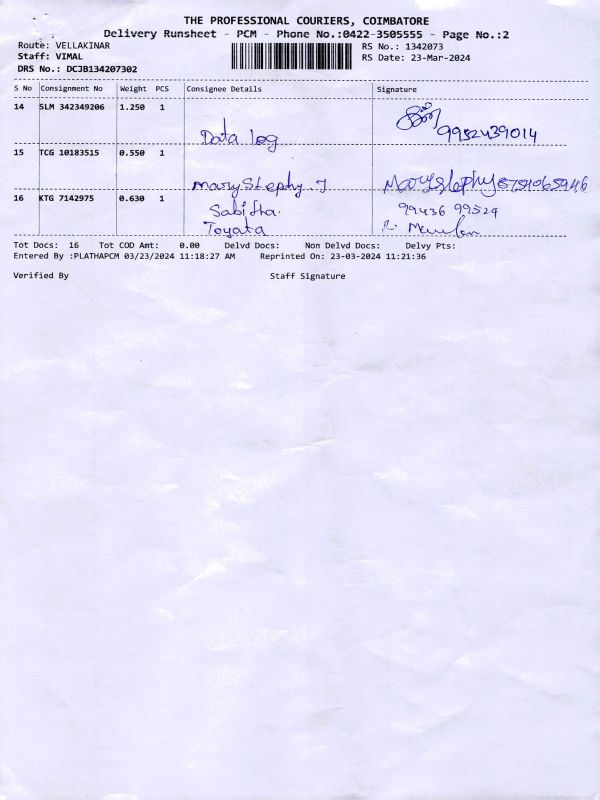 THE PROFESSIONAL COURIERS, COIMBATORE
Delivery Runsheet - PCM - Phone No.:0422-3505555 - Page No.:2
Route: VELLAKINAR RS No.: 1342073
Staff: VIMAL RS Date: 23-Mar-2024
DRS No.: DCJB134207302
S No Consignment No Weight PCS Consignee Details Signature
14 SLM 342349206 1.250 1
Data log 9952439014
15 TCG 10183515 0.550 1
Mary Stephy. J Marystephy
16 KTG 7142975 0.630 1
Sabitha. 99436 99524
Toyata
Tot Docs: 16 Tot COD Amt: 0.00 Delvd Docs: Non Delvd Docs: Delvy Pts:
Entered By :PLATHAPCM 03/23/2024 11:18:27 AM Reprinted On: 23-03-2024 11:21:36
Verified By Staff Signature